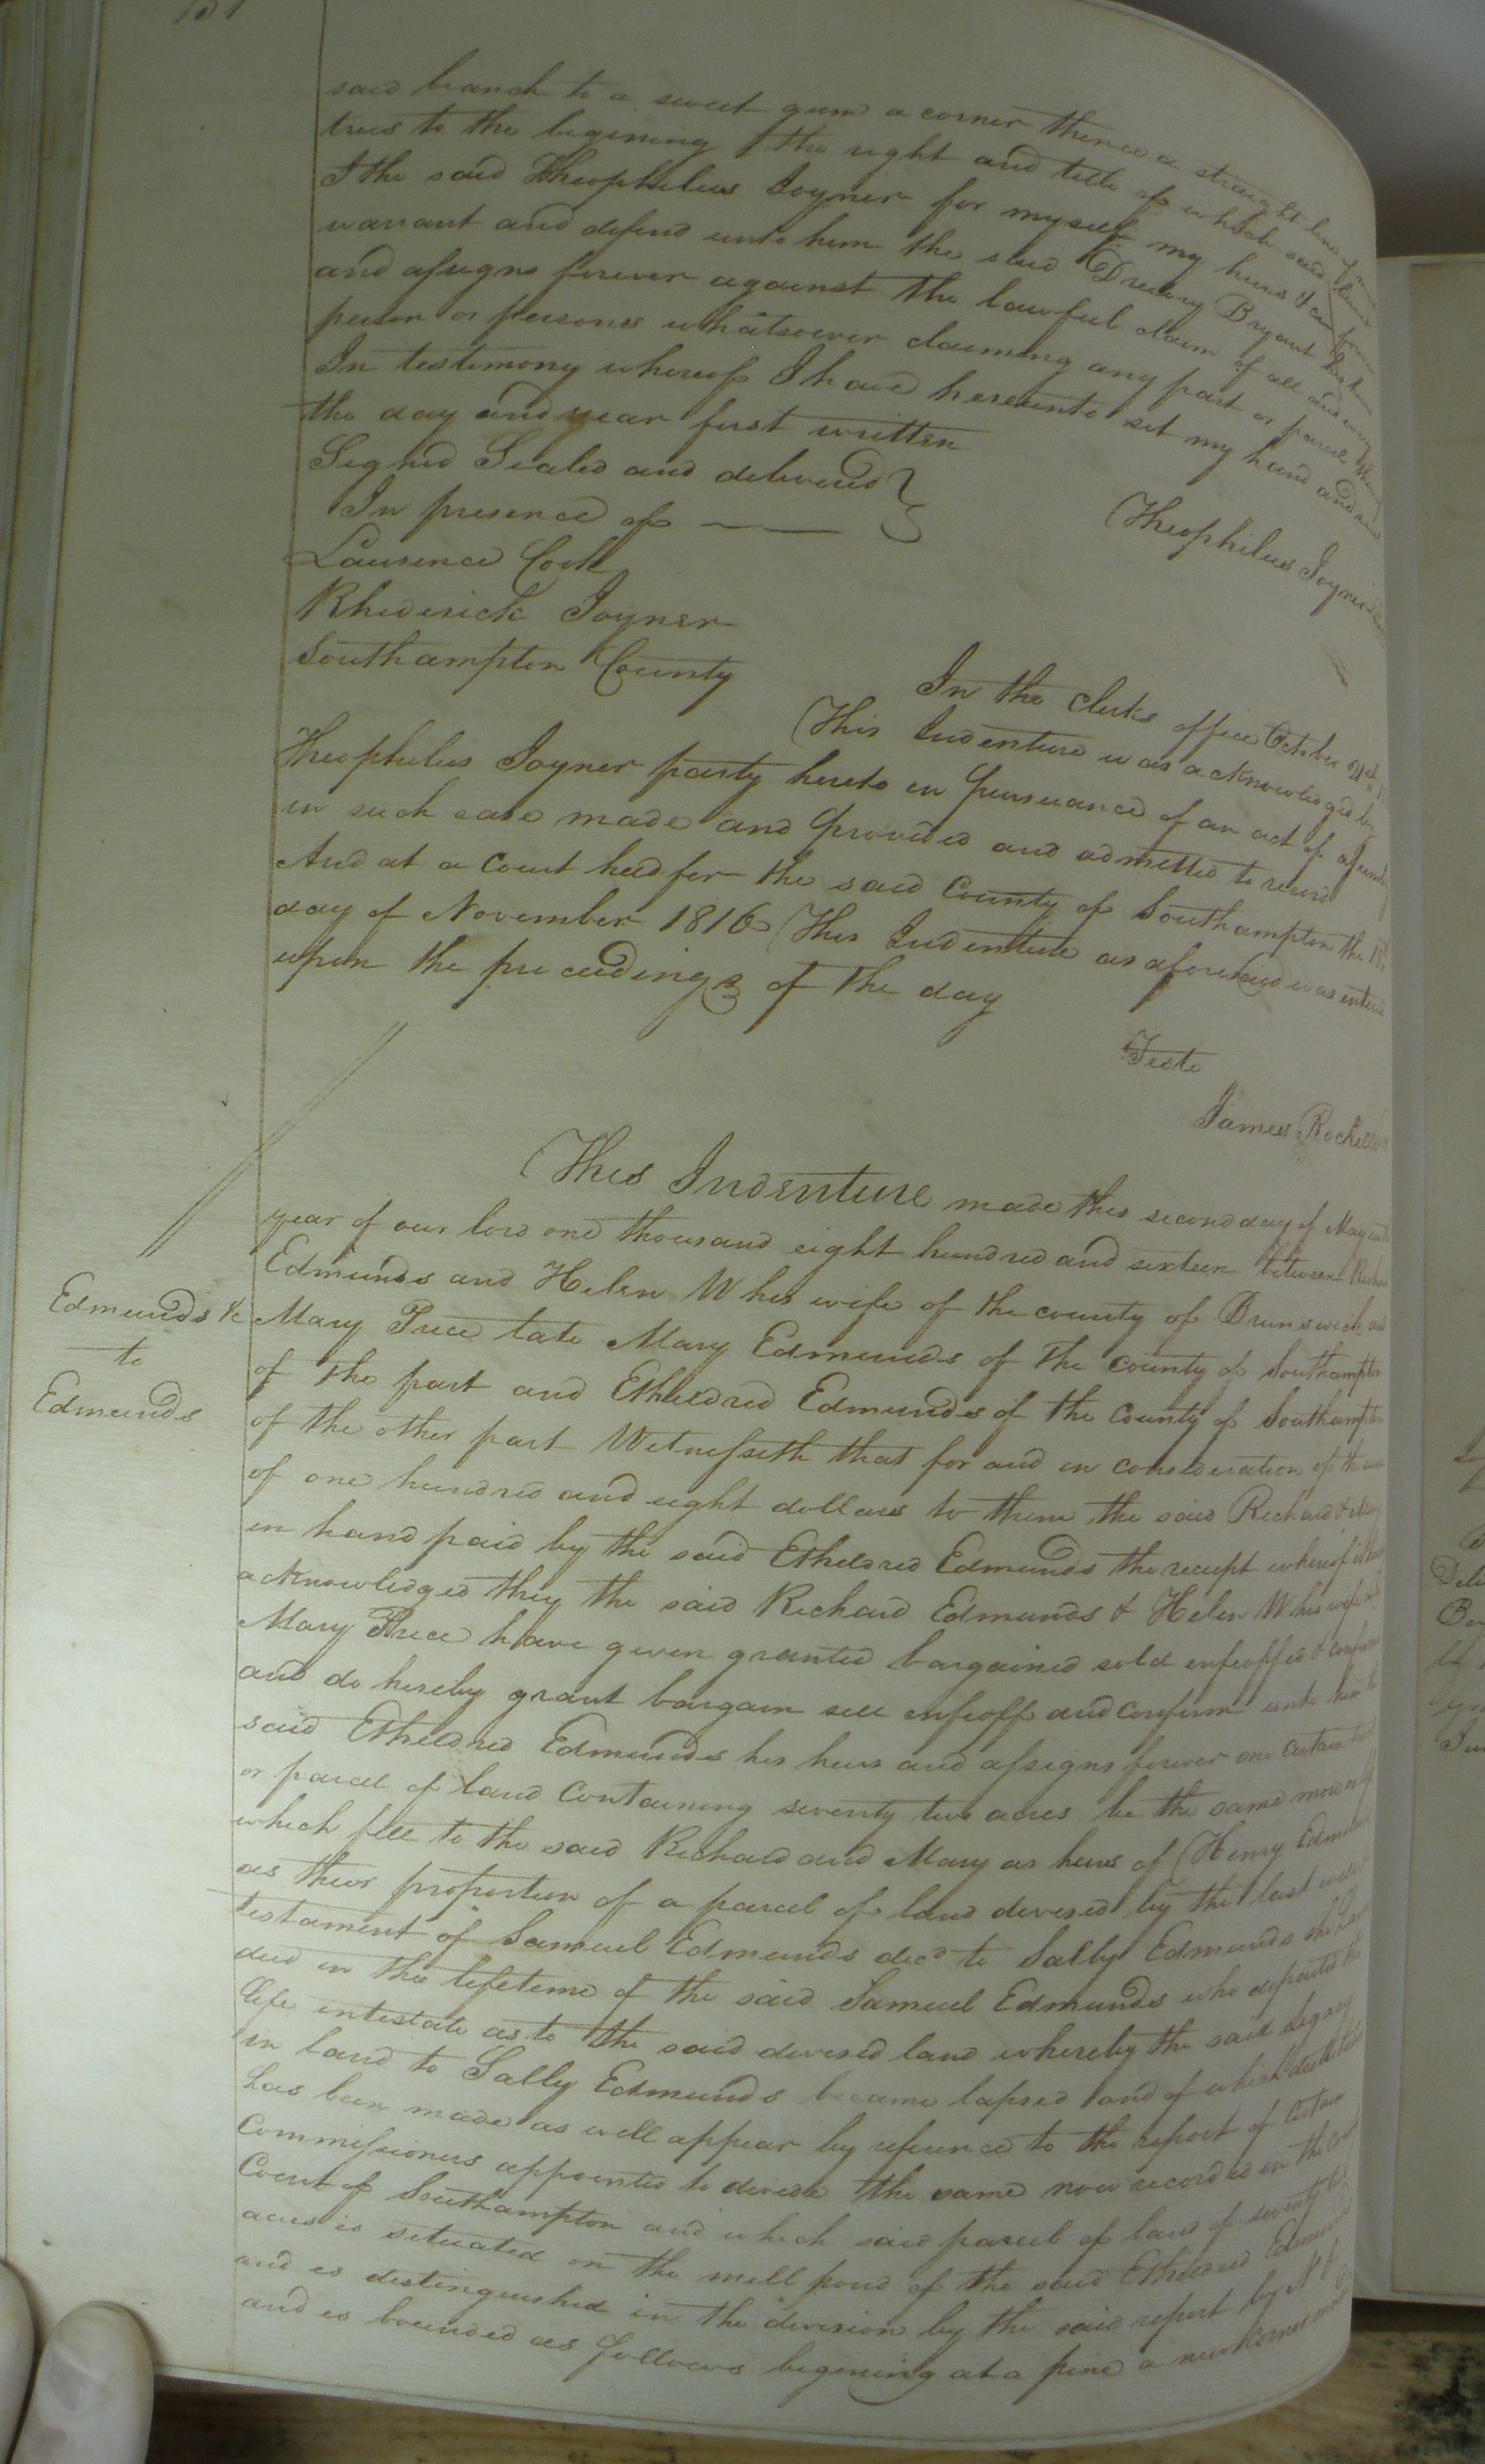 said branch to a sweet gum a corner thence a straight line of
trees to the begining the right and title of which said land
I the said Theophilus Joyner for myself my heirs &c forever
warrant and defend unto him the said Drewry Bryant his heirs
and assigns forever against the lawful claim of all and every
person or persones whatsoever claiming any part or parcel thereof
In testimony whereof I have hereunto set my hand and seal
the day and year first written
Signed Sealed and delivered
In presence of
Theophilus Joyner
Laurence Cook
Rhoderick Joyner
Southampton County
In the clerks office October 21st
This Indenture was acknowledged by
Theophilus Joyner party hereto in pursuance of an act of assembly
in such case made and provided and admitted to record
And at a Court held for the said County of Southampton the
day of November 1816 This Indenture as aforesaid was entered
upon the proceedings of the day
Teste
James Rochelle
This Indenture made this second day of May in the
year of our lord one thousand eight hundred and sixteen between Richard
Edmunds and Helen W his wife of the county of Brunswick and
Edmunds &c
to
Edmunds
Mary Price late Mary Edmunds of the county of Southampton
of the part and Etheldred Edmunds of the County of Southampton
of the other part Witnesseth that for and in consideration of the sum
of one hundred and eight dollars to them the said Richard & Mary
in hand paid by the said Etheldred Edmunds the receipt whereof is
acknowledged they the said Richard Edmunds & Helen W his wife
Mary Price have given granted bargained sold enfeoffed & confirmed
and do hereby grant bargain sell enfeoff and confirm unto him the
said Etheldred Edmunds his heirs and assigns forever one certain tract
or parcel of land Containing seventy two acres be the same more or less
which fell to the said Richard and Mary as heirs of Henry Edmunds
as their proportion of a parcel of land devised by the last will &
testament of Samuel Edmunds decd to Sally Edmunds she having
died in the lifetime of the said Samuel Edmunds who departed this
life intestate as to the said devised land whereby the said Legacy
in land to Sally Edmunds became lapsed and of which distribution
has been made as well appear by reference to the report of Certain
Commissioners appointed to devide the same now recorded in the County
Court of Southampton and which said parcel of land of seventy two
acres is situated on the mill pond of the said Etheldred Edmunds
and is distinguished in the devision by the said report by
and is bounded as follows begining at a pine a new corner